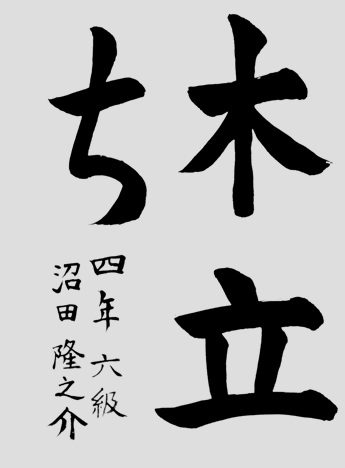 木立
ち
四年 六級
沼田隆之介